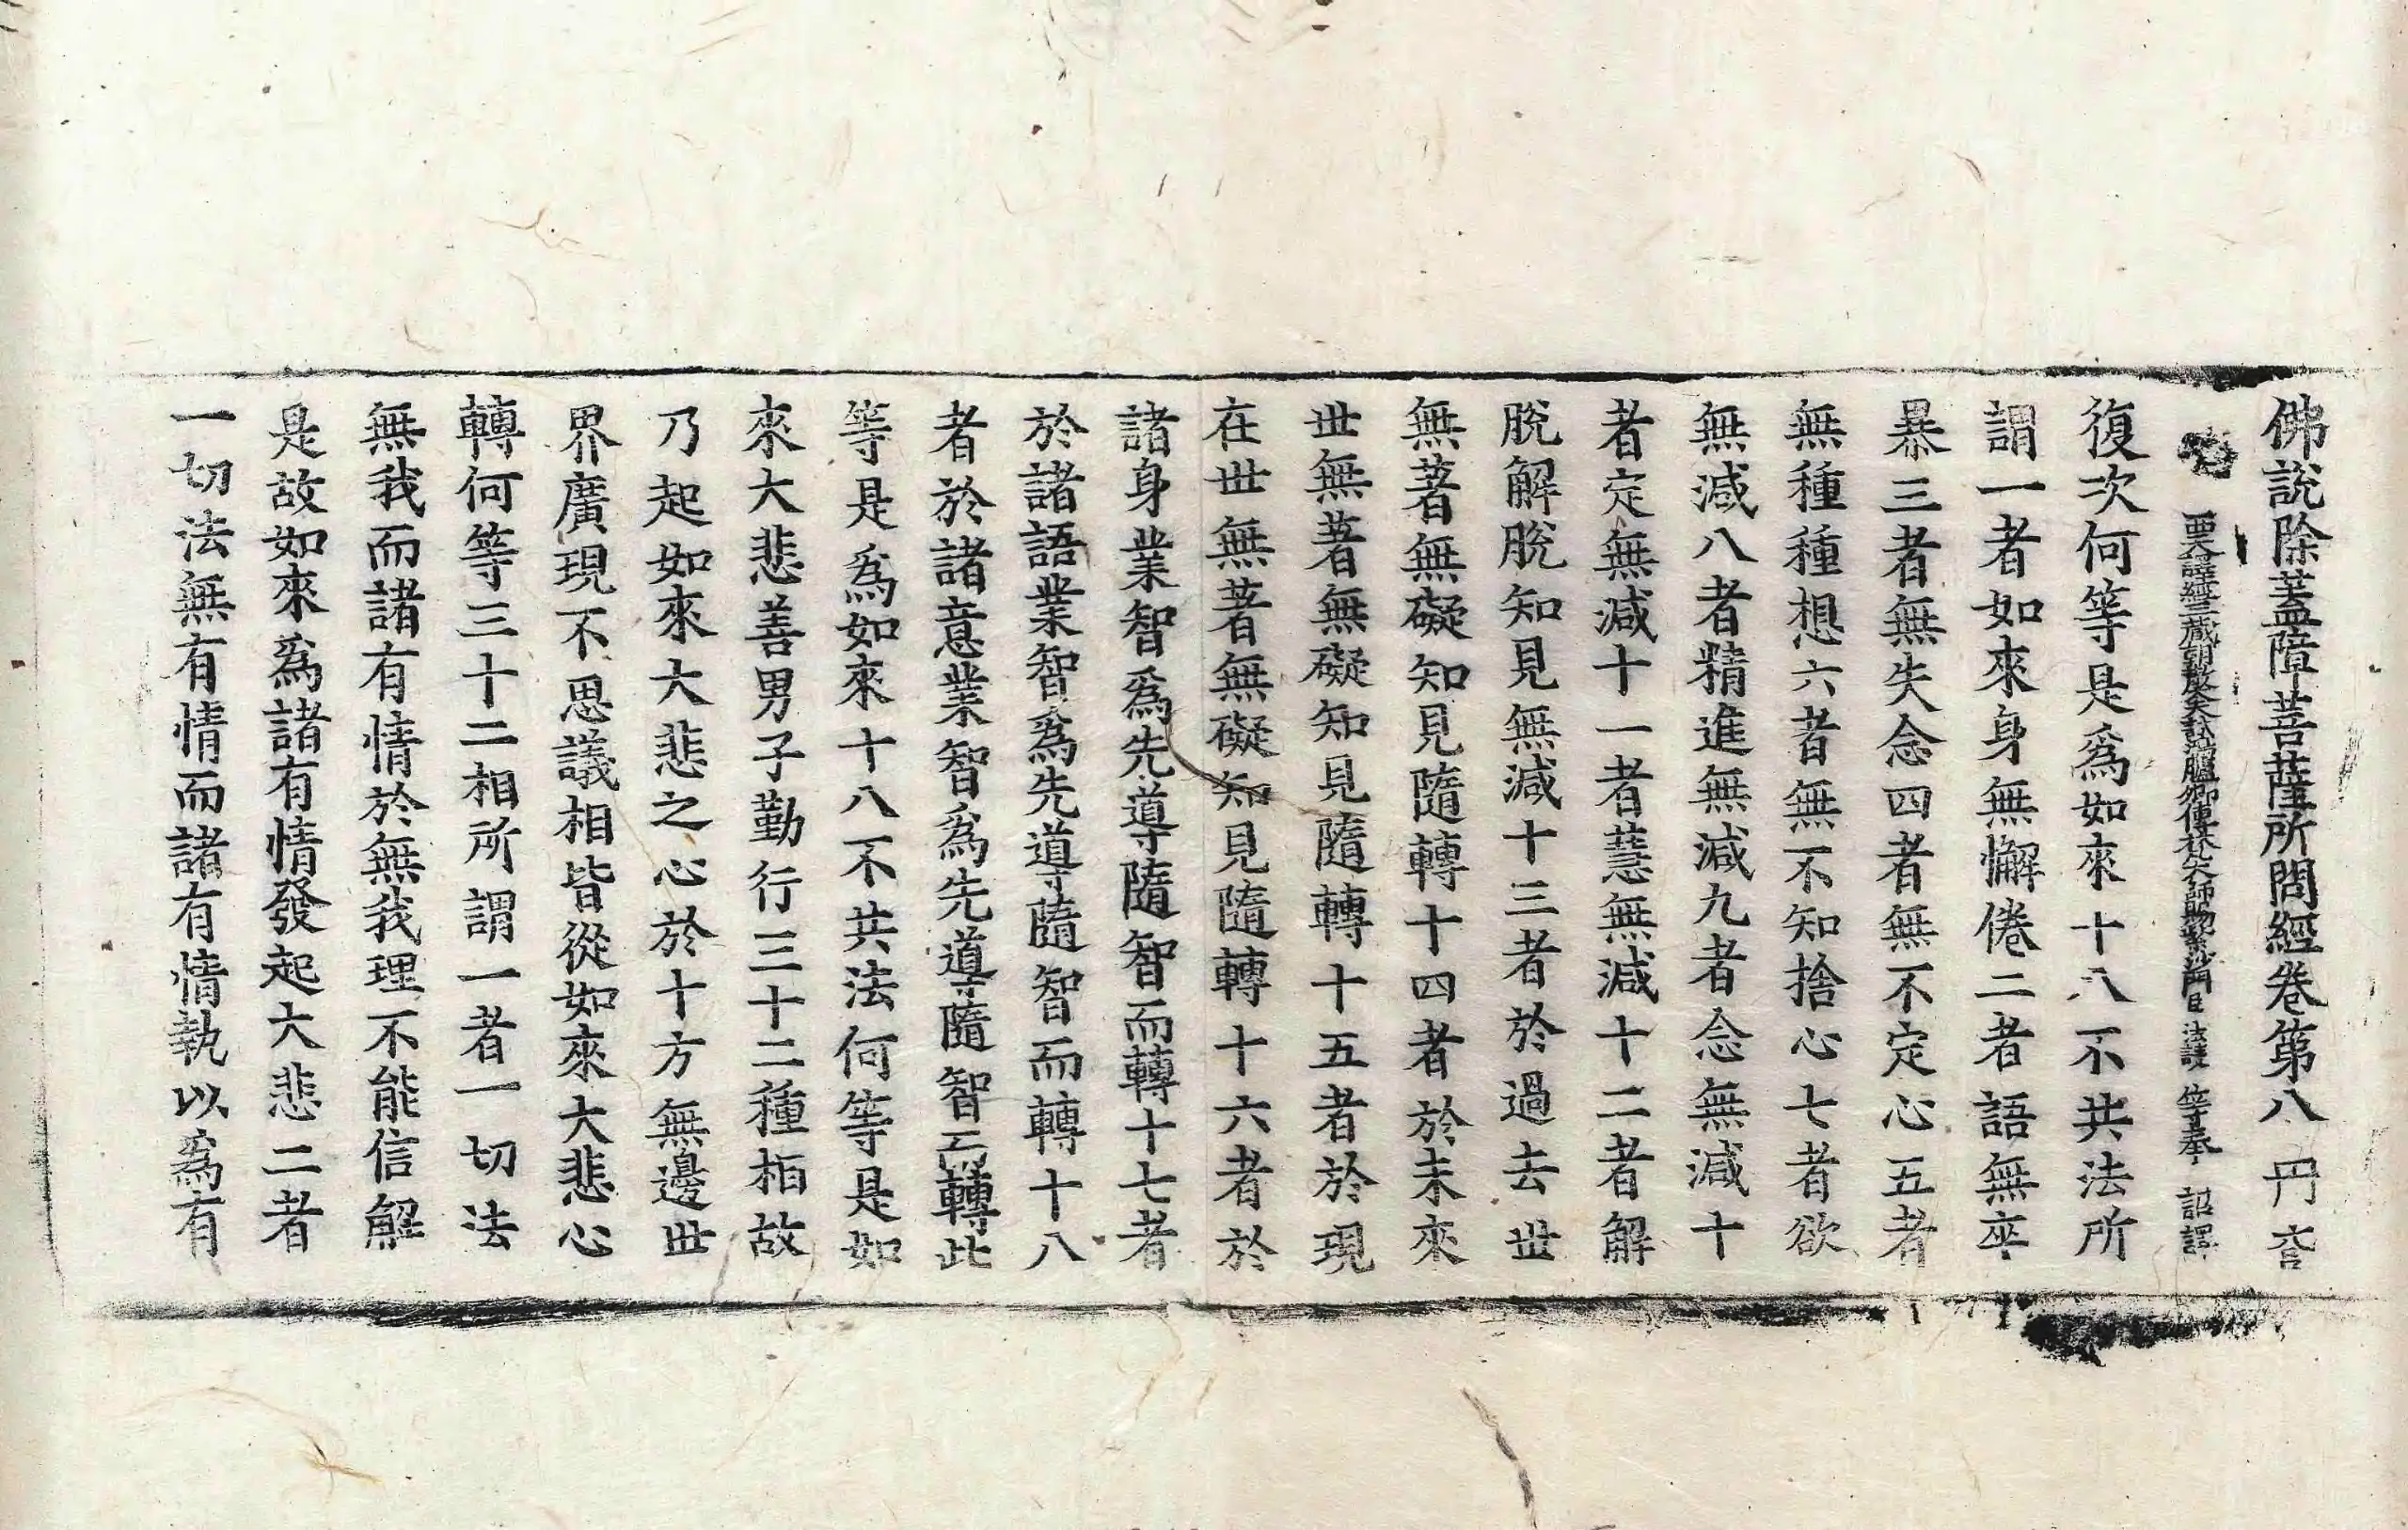 佛說除蓋障菩薩所問經卷第八 冈 杏
西天譯經三藏朝散大夫試鴻臚卿傳梵大師賜紫沙門臣 法護 等奉 詔譯
復次何等是爲如來十八不共法所
謂一者如來身無懈倦二者語無卒
暴三者無失念四者無不定心五者
無種種想六者無不知捨心七者欲
無減八者精進無減九者念無減十
者定無減十一者慧無減十二者解
脫解脫知見無減十三者於過去世
無著無礙知見隨轉十四者於未來
世無著無礙知見隨轉十五者於現
在世無著無礙知見隨轉十六者於
諸身業智爲先導隨智而轉十七者
於諸語業智爲先導隨智而轉十八
者於諸意業智爲先導隨智而轉此
等是爲如來十八不共法何等是如
來大悲善男子勤行三十二種相故
乃起如來大悲之心於十方無邊世
界廣現不思議相皆從如來大悲心
轉何等三十二相所謂一者一切法
無我而諸有情於無我理不能信解
是故如來爲諸有情發起大悲二者
一切法無有情而諸有情執以爲有